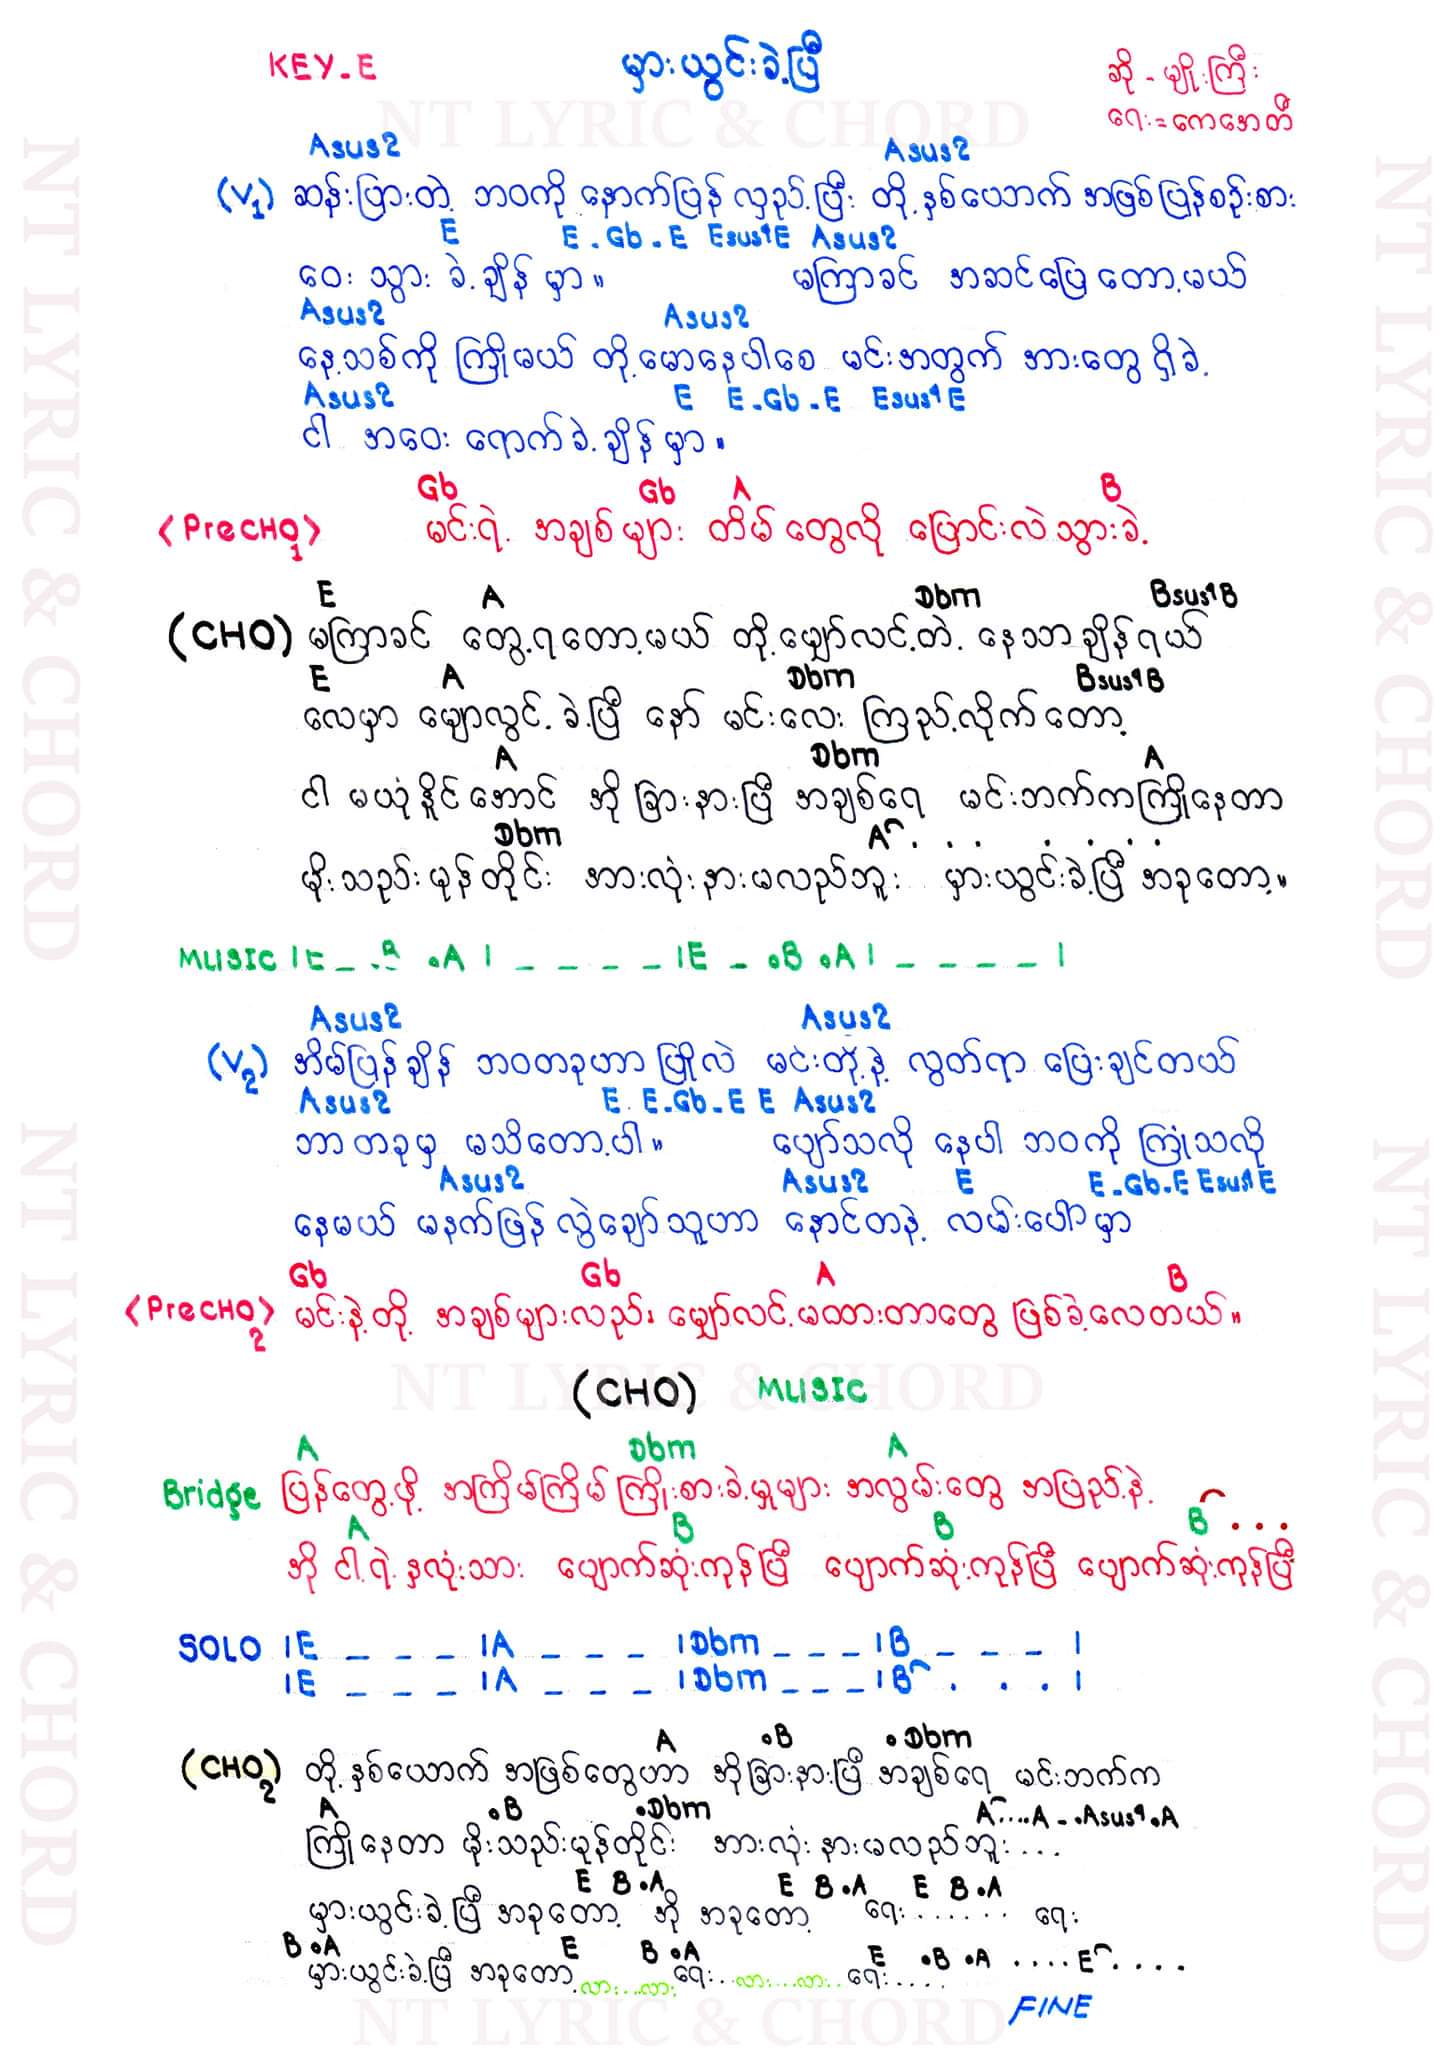 KEY-E
မှားယွင်းခဲ့ပြီ
ဆို - မျိုးကြီး
ရေး = ကေအောတီ
NT LYRIC & CHORD
Asus2 Asus2
(V1) ဆန်းပြားတဲ့ ဘဝကို နောက်ပြန် လှည့်ပြီး တို့နှစ်ယောက် အဖြစ်ပြန်စဉ်းစား
E E - Gb - E Esus4 E Asus2
ဝေး သွား ခဲ့ ချိန် မှာ။ မကြာခင် အဆင်ပြေ တော့မယ်
Asus2 Asus2
နေ့သစ်ကို ကြိုမယ် တို့မောနေပါစေ မင်းအတွက် အားတွေ ရှိခဲ့
Asus2 E E - Gb - E Esus4 E
ငါ အဝေး ရောက်ခဲ့ ချိန် မှာ။
Gb Gb A B
<PreCHO1> မင်းရဲ့ အချစ် များ တိမ် တွေလို ပြောင်းလဲ သွားခဲ့
E A Dbm Bsus4 B
(CHO) မကြာခင် တွေ့ရတော့မယ် တို့မျှော်လင့်တဲ့ နေသာချိန်ရယ်
E A Dbm Bsus4 B
လေမှာ မျောလွင့် ခဲ့ပြီ နော် မင်းလေး ကြည့်လိုက်တော့
A Dbm A
ငါ မယုံနိူင်အောင် အို ခြားနားပြီ အချစ်ရေ မင်းဘက်ကကြိုနေတာ
Dbm A . . . . . .
မိုးသည်းမုန်တိုင်း အားလုံးနားမလည်ဘူး မှားယွင်းခဲ့ပြီ အခုတော့။
MUSIC | E _ . B . A | _ _ _ _ | E _ . B . A | _ _ _ _ |
Asus2 Asus2
(V2) အိမ်ပြန်ချိန် ဘဝတခုဟာ ပြိုလဲ မင်းတို့နဲ့ လွတ်ရာ ပြေးချင်တယ်
Asus2 E E - Gb - E E Asus2
ဘာ တခုမှ မသိတော့ပါ။ ပျော်သလို နေပါ ဘဝကို ကြုံသလို
Asus2 Asus2 E E - Gb - E Esus4 E
နေမယ် မနက်ဖြန် လွဲချော်သူဟာ နောင်တနဲ့ လမ်းပေါ်မှာ
Gb Gb A B
<PreCHO2> မင်းနဲ့တို့ အချစ်များလည်း မျှော်လင့်မထားတာတွေ ဖြစ်ခဲ့လေတယ်။
(CHO) MUSIC
NT LYRIC & CHORD
A Dbm A
Bridge ပြန်တွေ့ဖို့ အကြိမ်ကြိမ် ကြိုးစားခဲ့မှုများ အလွမ်းတွေ အပြည့်နဲ့
A B B B . . .
အို ငါ့ရဲ့ နှလုံးသား ပျောက်ဆုံးကုန်ပြီ ပျောက်ဆုံးကုန်ပြီ ပျောက်ဆုံးကုန်ပြီ
SOLO | E _ _ _ | A _ _ _ | Dbm _ _ _ | B _ _ _ |
| E _ _ _ | A _ _ _ | Dbm _ _ _ | B . . . |
A . B . Dbm
(CHO2) တို့နှစ်ယောက် အဖြစ်တွေဟာ အိုခြားနားပြီ အချစ်ရေ မင်းဘက်က
A . B . Dbm A .... A - . Asus4 . A
ကြိုနေတာ မိုးသည်းမုန်တိုင်း အားလုံး နားမလည်ဘူး ...
E B . A E B . A E B . A
မှားယွင်းခဲ့ပြီ အခုတော့ အို အခုတော့ ရေး ....... ရေး
B . A E B . A E . B . A .... E ....
မှားယွင်းခဲ့ပြီ အခုတော့ လား...လား ရေး...လား...လား.. ရေး....
FINE
NT LYRIC & CHORD
NT LYRIC & CHORD
NT LYRIC & CHORD
NT LYRIC & CHORD
NT LYRIC & CHORD